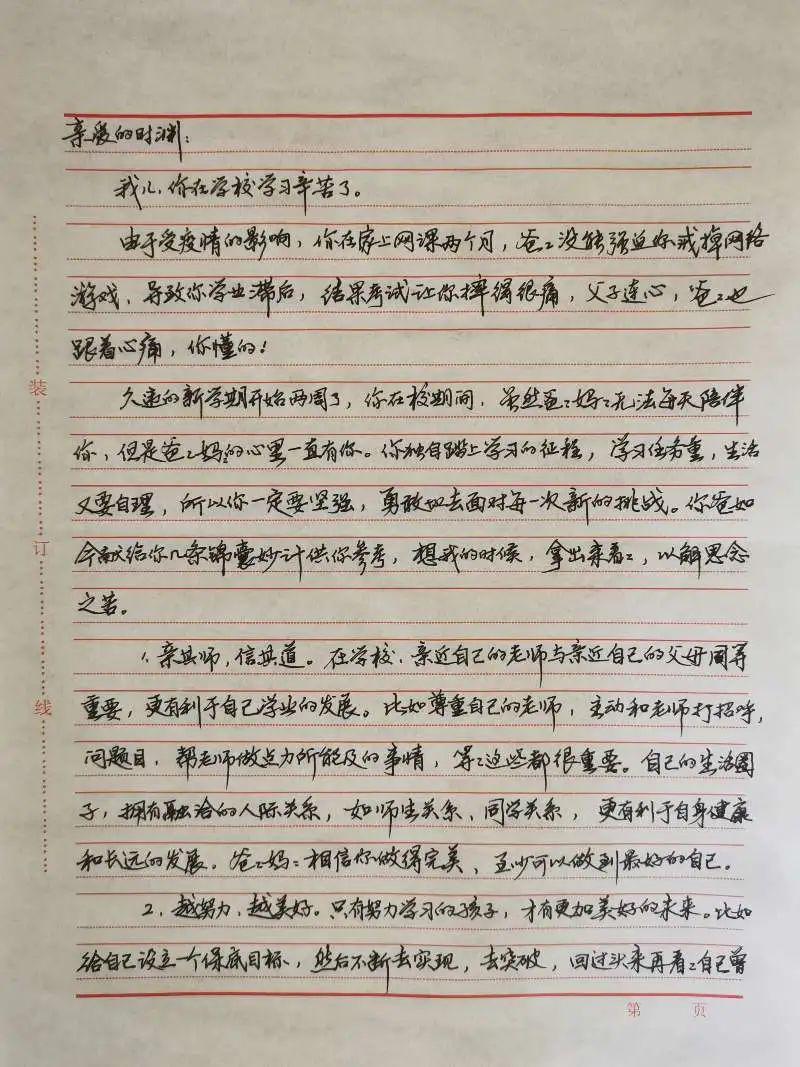 亲爱的时渊：
我儿，你在学校学习辛苦了。
由于受疫情的影响，你在家上网课两个月，爸爸没能强迫你戒掉网络
游戏、导致你学业滞后，结果考试让你摔得很痛，父子连心，爸爸也
跟着心痛，你懂的！
久违的新学期开始两周了，你在校期间，虽然爸爸妈妈无法每天陪伴
你，但是爸爸妈妈的心里一直有你。你独自踏上学习的征程，学习任务重，生活
又要自理，所以你一定要坚强，勇敢地去面对每一次新的挑战。你爸如
今献给你几条锦囊妙计供你参考，想我的时候，拿出来看看，以解思念
之苦。
1、亲其师，信其道。在学校，亲近自己的老师与亲近自己的父母同等
重要，更有利于自己学业的发展。比如尊重自己的老师，主动和老师打招呼，
问题目，帮老师做点力所能及的事情，等等这些都很重要。自己的生活圈
子，拥有融洽的人际关系，如师生关系、同学关系，更有利于自身健康
和长远的发展。爸爸妈妈相信你做得完美、至少可以做到最好的自己。
2、越努力、越美好。只有努力学习的孩子，才有更加美好的未来。比如
给自己设立一个保底目标、然后不断去实现，去突破，回过头来再看看自己曾
装
订
线
第 页